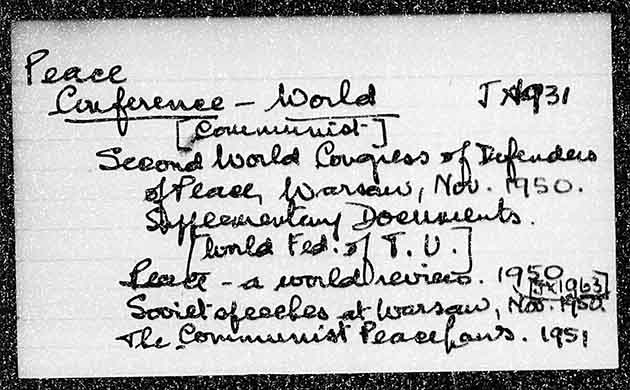 Peace
Conference - World JX1931
[Communist]
Second World Congress of Defenders
of Peace, Warsaw, Nov. 1950.
Supplementary Documents.
[World Fed: of T.U.]
Peace - a world review. 1950
[JX1963]
Soviet speeches at Warsaw, Nov. 1950.
The Communist Peace
1951